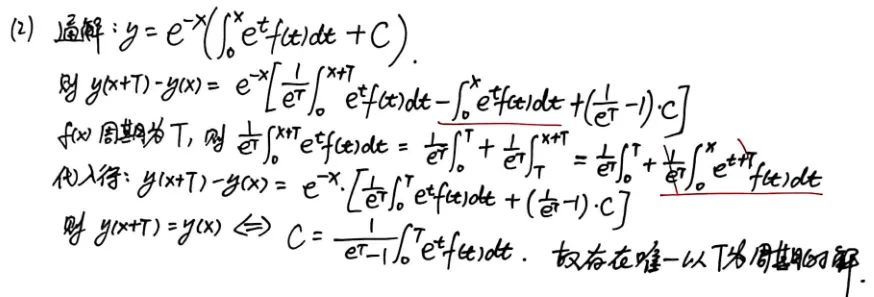 (2) 通解：y = e^{-x}(∫_0^x e^t f(t)dt + C).
则 y(x+T)-y(x) = e^{-x}[1/e^T ∫_0^{x+T} e^t f(t)dt - ∫_0^x e^t f(t)dt + (1/e^T - 1)·C]
f(x) 周期为 T, 则 1/e^T ∫_0^{x+T} e^t f(t)dt = 1/e^T ∫_0^T + 1/e^T ∫_T^{x+T} = 1/e^T ∫_0^T + 1/e^T ∫_0^x e^{t+T} f(t)dt
代入得：y(x+T)-y(x) = e^{-x}·[1/e^T ∫_0^T e^t f(t)dt + (1/e^T - 1)·C]
则 y(x+T)=y(x) ⇔ C = 1/(e^T-1) ∫_0^T e^t f(t)dt. 故存在唯一以T为周期的解.